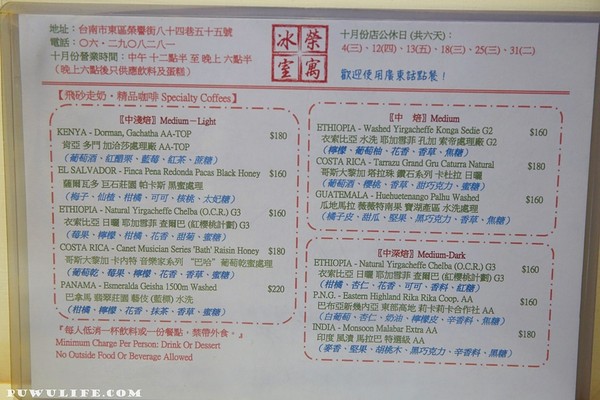 地址：台南市東區榮譽街八十四巷五十五號
電話：〇六・二九〇八二八一
十月份營業時間：中午 十二點半 至 晚上 六點半
(晚上六點後只供應飲料及蛋糕)
榮寓冰室
十月份店公休日 (共六天)：
4(三), 12(四), 13(五), 18(三), 25(三), 31(二)
歡迎使用廣東話點餐！
【飛砂走奶・精品咖啡 Specialty Coffees】
〖中淺焙〗Medium－Light
KENYA - Dorman, Gachatha AA-TOP $180
肯亞 多門 加洽薩處理廠 AA-TOP
(葡萄酒、紅醋栗、藍莓、紅茶、蔗糖)
EL SALVADOR - Finca Pena Redonda Pacas Black Honey $160
薩爾瓦多 巨石莊園 帕卡斯 黑蜜處理
(梅子、仙楂、柑橘、可可、核桃、太妃糖)
ETHIOPIA - Natural Yirgacheffe Chelba (O.C.R.) G3 $160
衣索比亞 日曬 耶加雪菲 查爾巴 (紅櫻桃計劃) G3
(莓果、檸檬、柑橘、花香、甜菊、蜂蜜)
COSTA RICA - Canet Musician Series 'Bath' Raisin Honey $180
哥斯大黎加 卡內特 音樂家系列 “巴哈” 葡萄乾蜜處理
(葡萄乾、莓果、檸檬、花香、香草、蜂蜜)
PANAMA - Esmeralda Geisha 1500m Washed $220
巴拿馬 翡翠莊園 藝伎 (藍標) 水洗
(柑橘、檸檬、花香、抹茶、香草、蜂蜜)
『每人低消一杯飲料或一份餐點，禁帶外食。』
Minimum Charge Per Person: Drink Or Dessert
No Outside Food Or Beverage Allowed
〖中　焙〗Medium
ETHIOPIA - Washed Yirgacheffe Konga Sedie G2 $160
衣索比亞 水洗 耶加雪菲 孔加 索帝處理廠 G2
(檸檬、葡萄柚、花香、香草、焦糖)
COSTA RICA - Tarrazu Grand Gru Caturra Natural $180
哥斯大黎加 塔拉珠 鑽石系列 卡杜拉 日曬
(葡萄酒、櫻桃、香草、甜巧克力、蜜糖)
GUATEMALA - Huehuetenango Palhu Washed $160
瓜地馬拉 薇薇特南果 寶湖產區 水洗處理
(橘子皮、甜瓜、堅果、黑巧克力、香草、焦糖)
〖中深焙〗Medium-Dark
ETHIOPIA - Natural Yirgacheffe Chelba (O.C.R.) G3 $160
衣索比亞 日曬 耶加雪菲 查爾巴 (紅櫻桃計劃) G3
(柑橘、杏仁、花香、可可、香料、紅糖)
P.N.G. - Eastern Highland Rika Rika Coop. AA $160
巴布亞新幾內亞 東部高地 莉卡莉卡合作社 AA
(白葡萄、杏仁、奶油、檸檬皮、辛香料、焦糖)
INDIA - Monsoon Malabar Extra AA $180
印度 風漬 馬拉巴 特選級 AA
(麥香、堅果、胡桃木、黑巧克力、辛香料、黑糖)
PUWULIFE.COM